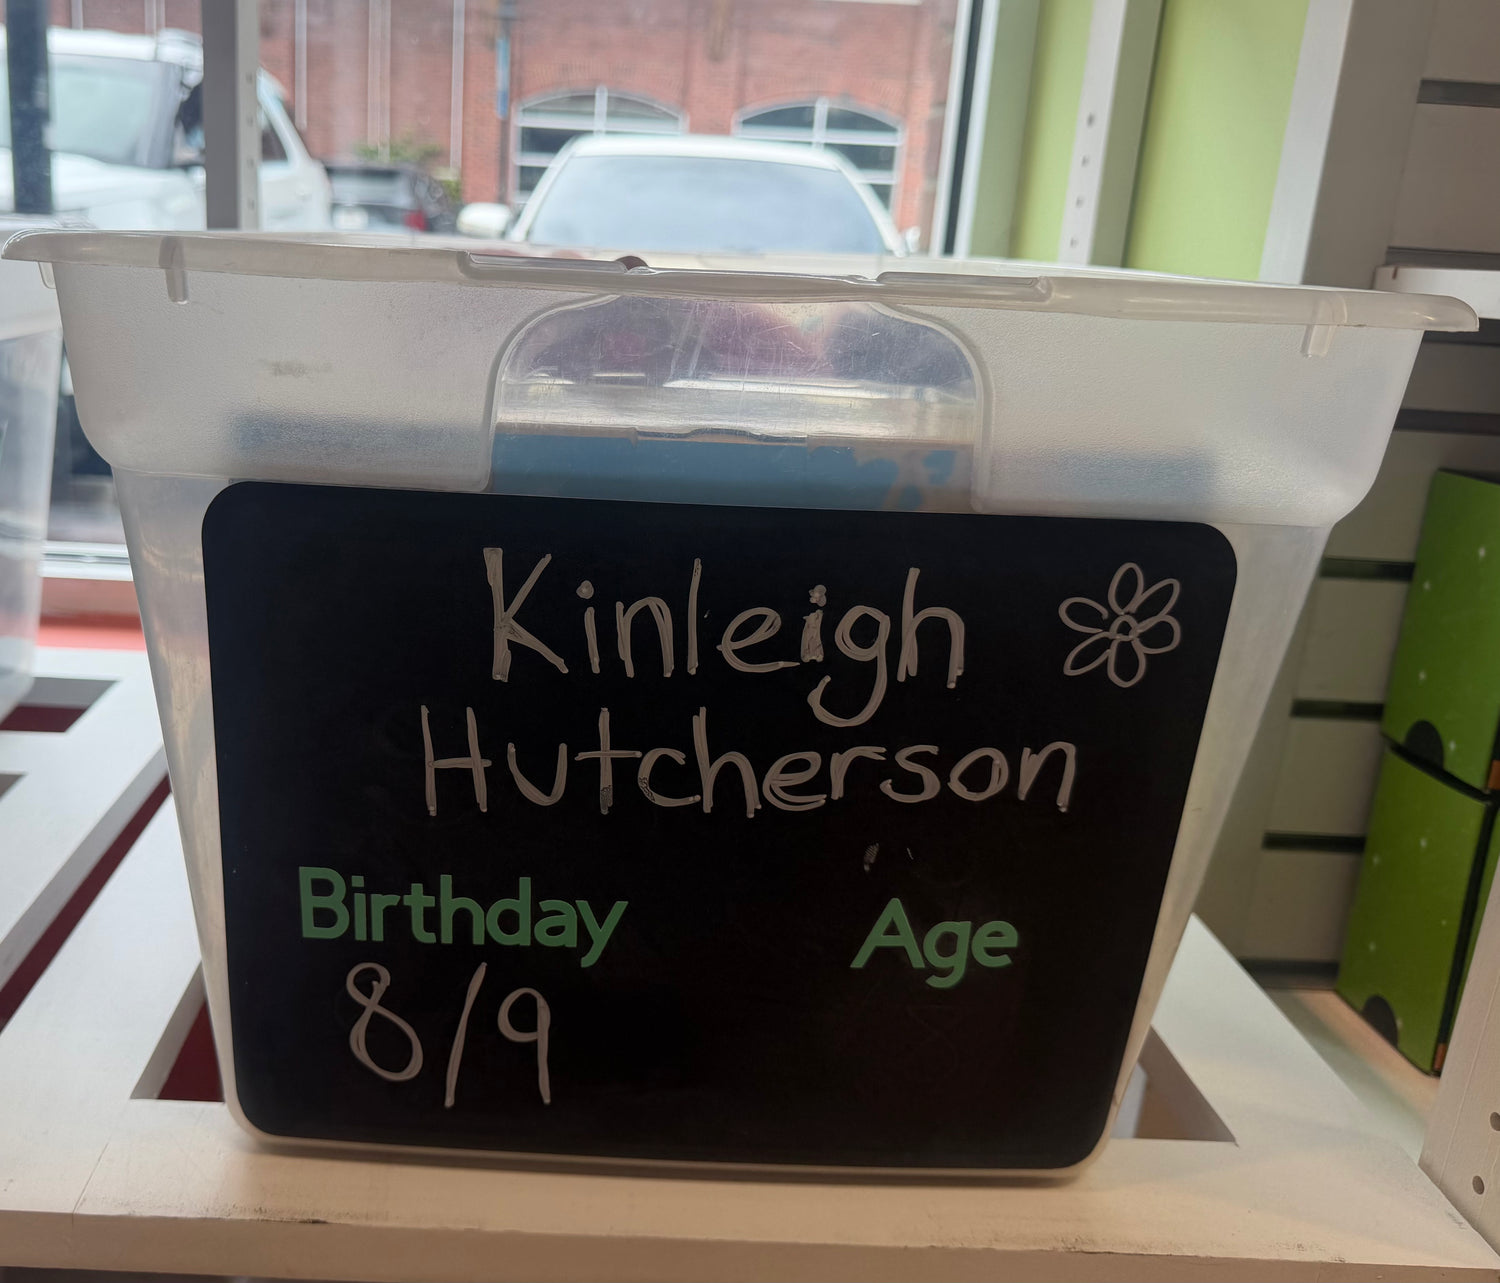 Kinleigh
Hutcherson
Birthday Age
8/9